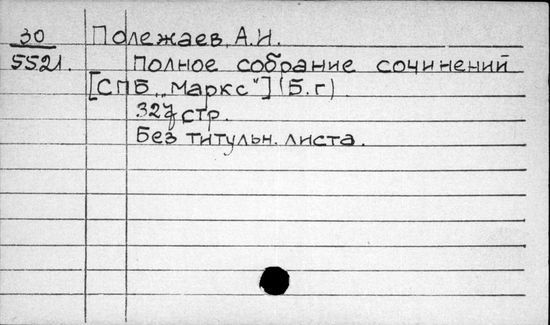 30 Полежаев, А.И.
5521. Полное собрание сочинений
[СПБ „Маркс“] (Б.г)
327 стр.
Без титульн. листа.